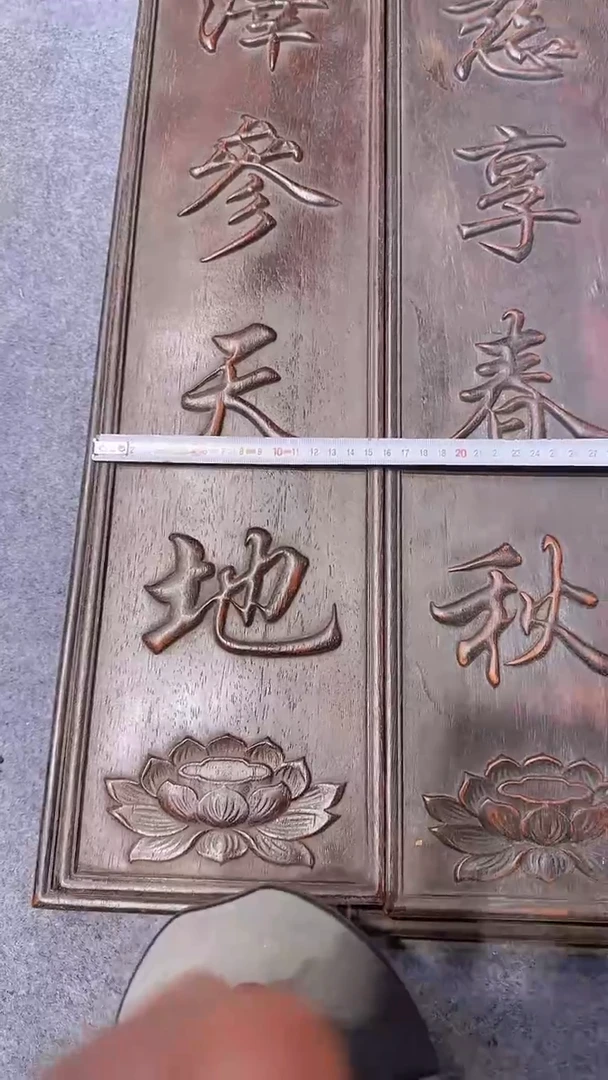 享春秋
參天地
8 9 10 11 12 13 14 15 16 17 18 19 20 21 22 23 24 25 26 27